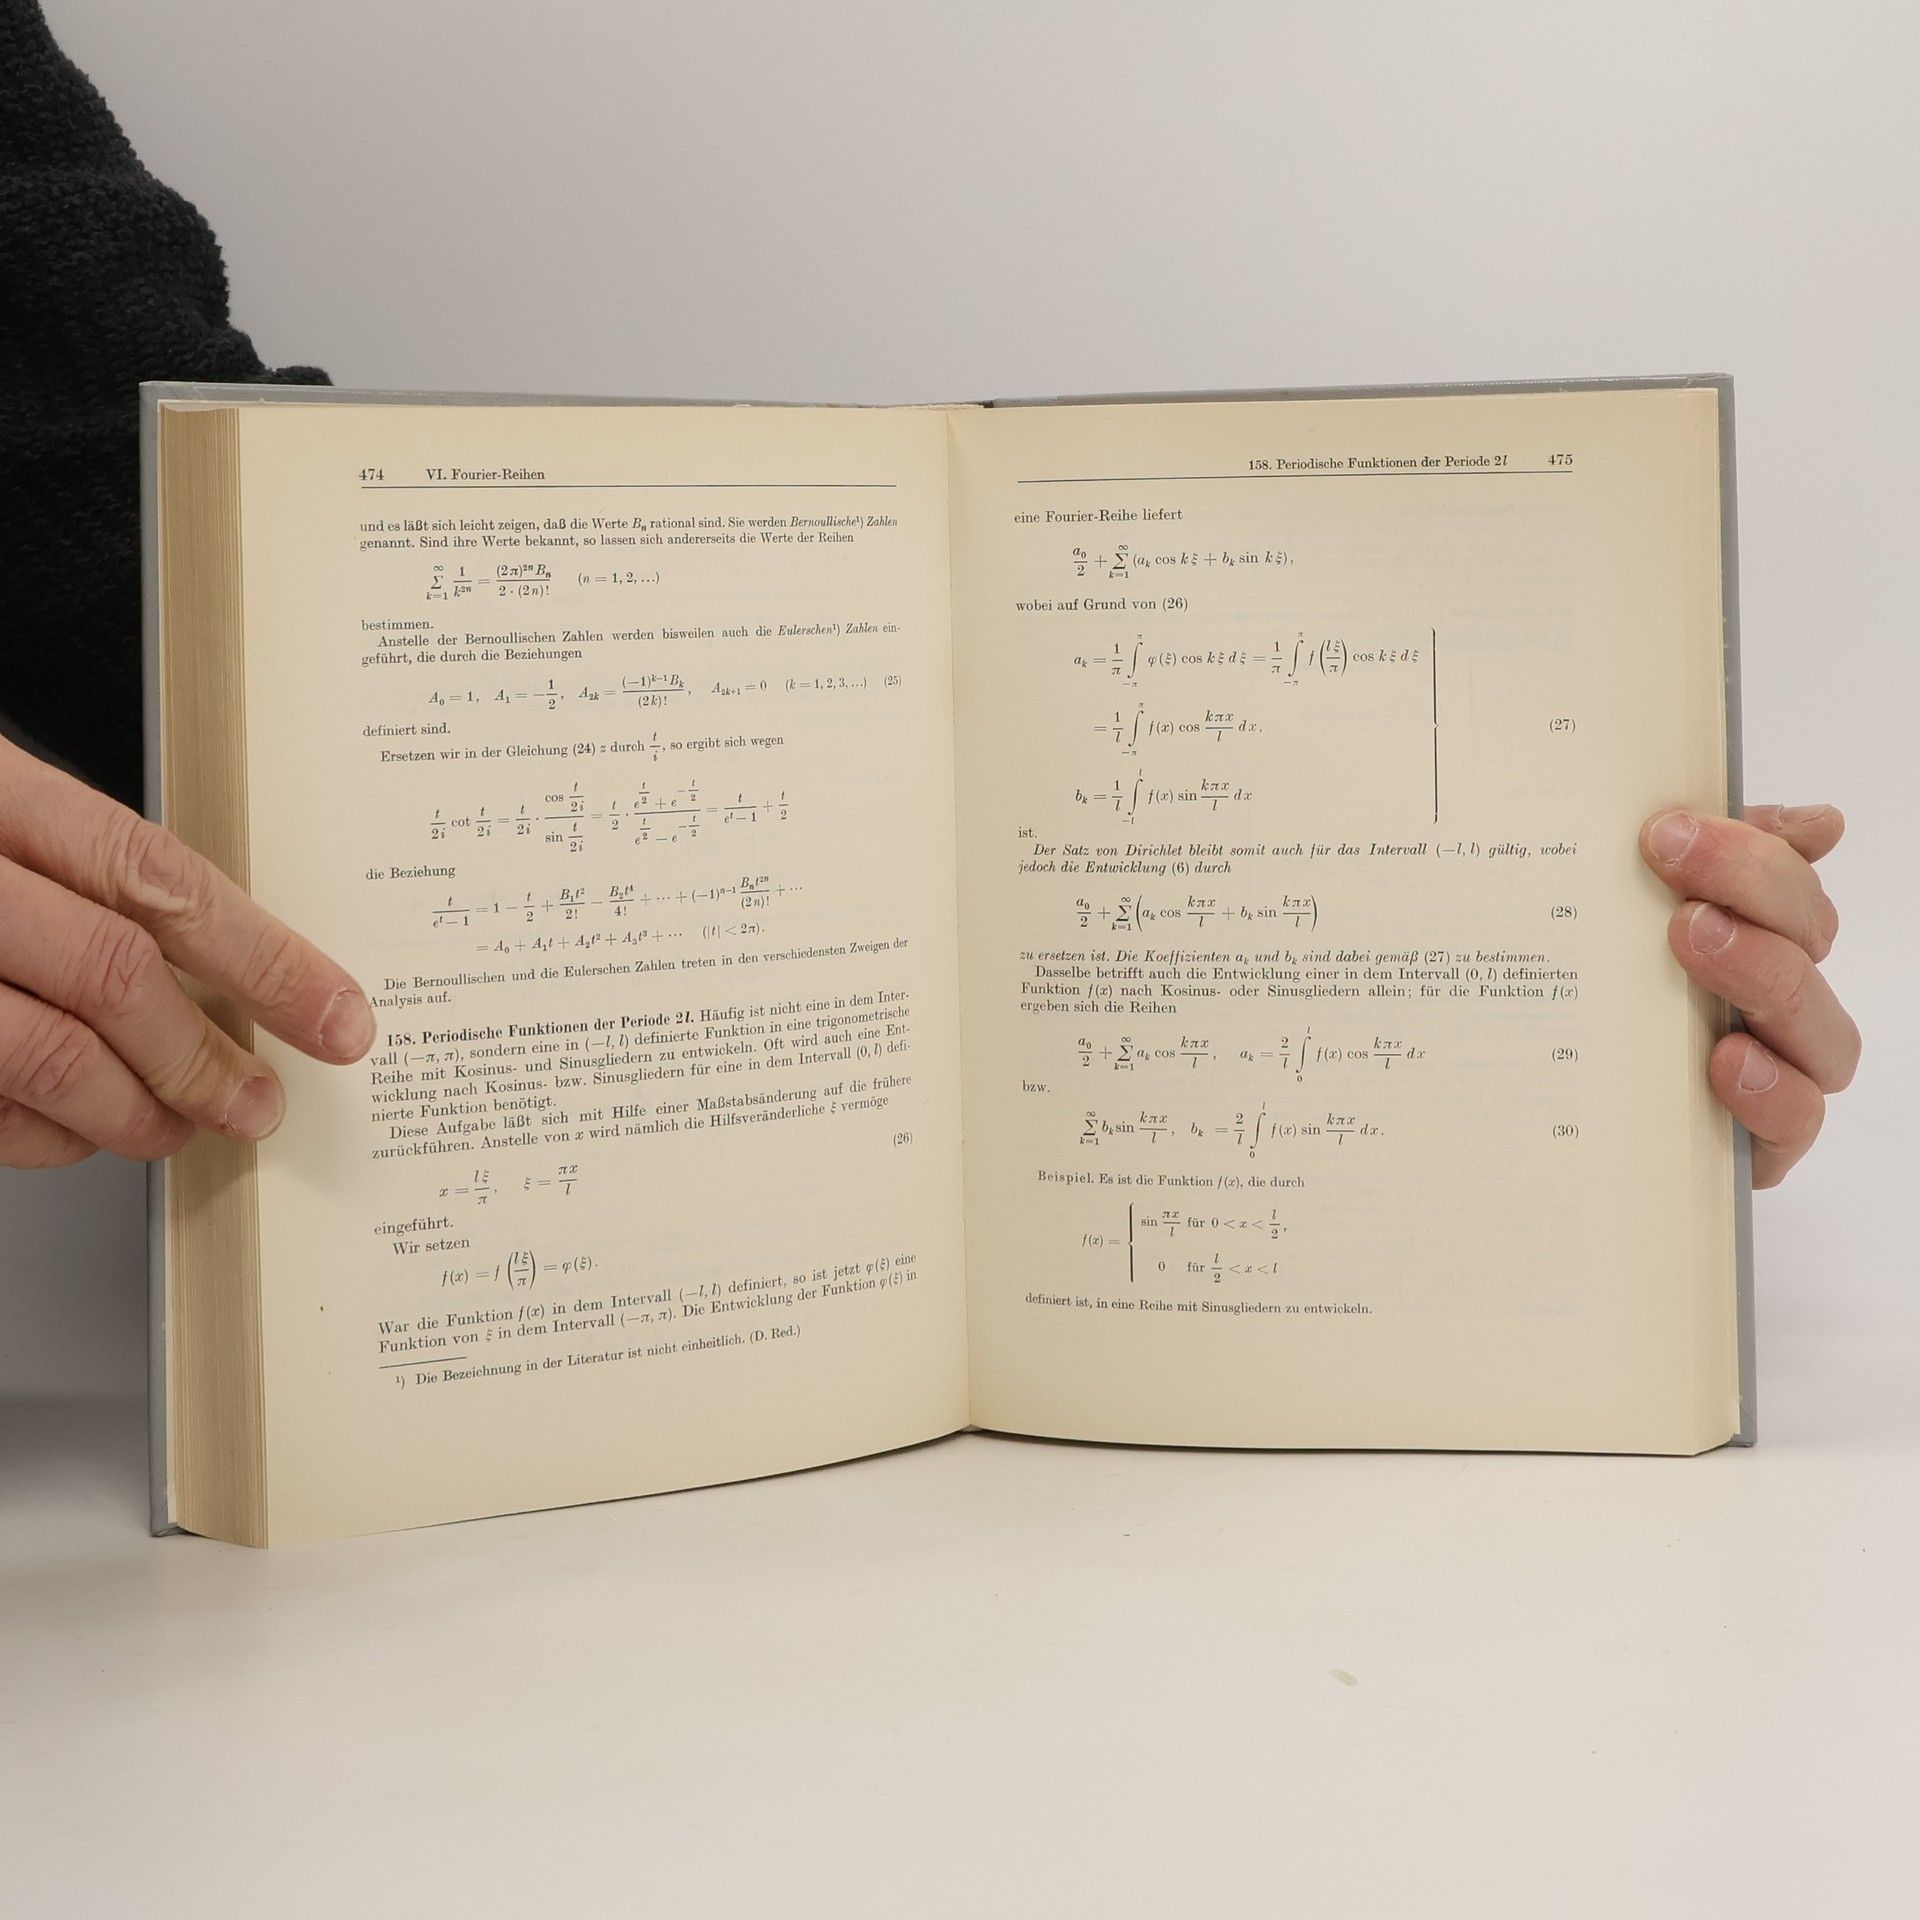 474 VI. Fourier-Reihen
und es läßt sich leicht zeigen, daß die Werte Bₙ rational sind. Sie werden Bernoullische¹) Zahlen
genannt. Sind ihre Werte bekannt, so lassen sich andererseits die Werte der Reihen
∑_{k=1}^{∞} 1/k^{2n} = (2π)^{2n} Bₙ / (2 · (2n)!) (n = 1, 2, ...)
bestimmen.
Anstelle der Bernoullischen Zahlen werden bisweilen auch die Eulerschen¹) Zahlen ein-
geführt, die durch die Beziehungen
A₀ = 1, A₁ = −1/2, A_{2k} = (−1)^{k−1} B_k / (2k)!, A_{2k+1} = 0 (k = 1, 2, 3, ...) (25)
definiert sind.
Ersetzen wir in der Gleichung (24) z durch t/i, so ergibt sich wegen
t/2i cot t/2i = t/2i · (cos t/2i)/(sin t/2i) = t/2 · (e^{t/2} + e^{−t/2})/(e^{t/2} − e^{−t/2}) = t/(e^t − 1) + t/2
die Beziehung
t/(e^t − 1) = 1 − t/2 + B₁t²/2! − B₂t⁴/4! + ··· + (−1)^{n−1} Bₙt^{2n}/(2n)! + ···
= A₀ + A₁t + A₂t² + A₃t³ + ··· (|t| < 2π).
Die Bernoullischen und die Eulerschen Zahlen treten in den verschiedensten Zweigen der
Analysis auf.
158. Periodische Funktionen der Periode 2l. Häufig ist nicht eine in dem Inter-
vall (−π, π), sondern eine in (−l, l) definierte Funktion in eine trigonometrische
Reihe mit Kosinus- und Sinusgliedern zu entwickeln. Oft wird auch eine Ent-
wicklung nach Kosinus- bzw. Sinusgliedern für eine in dem Intervall (0, l) defi-
nierte Funktion benötigt.
Diese Aufgabe läßt sich mit Hilfe einer Maßstabsänderung auf die frühere
zurückführen. Anstelle von x wird nämlich die Hilfsveränderliche ξ vermöge
x = lξ/π, ξ = πx/l (26)
eingeführt.
Wir setzen
f(x) = f(lξ/π) = φ(ξ).
War die Funktion f(x) in dem Intervall (−l, l) definiert, so ist jetzt φ(ξ) eine
Funktion von ξ in dem Intervall (−π, π). Die Entwicklung der Funktion φ(ξ) in
¹) Die Bezeichnung in der Literatur ist nicht einheitlich. (D. Red.)
158. Periodische Funktionen der Periode 2l 475
eine Fourier-Reihe liefert
a₀/2 + ∑_{k=1}^{∞} (a_k cos kξ + b_k sin kξ),
wobei auf Grund von (26)
a_k = 1/π ∫_{−π}^{π} φ(ξ) cos kξ dξ = 1/π ∫_{−π}^{π} f(lξ/π) cos kξ dξ
= 1/l ∫_{−π}^{π} f(x) cos kπx/l dx, (27)
b_k = 1/l ∫_{−l}^{l} f(x) sin kπx/l dx
ist.
Der Satz von Dirichlet bleibt somit auch für das Intervall (−l, l) gültig, wobei
jedoch die Entwicklung (6) durch
a₀/2 + ∑_{k=1}^{∞} (a_k cos kπx/l + b_k sin kπx/l) (28)
zu ersetzen ist. Die Koeffizienten a_k und b_k sind dabei gemäß (27) zu bestimmen.
Dasselbe betrifft auch die Entwicklung einer in dem Intervall (0, l) definierten
Funktion f(x) nach Kosinus- oder Sinusgliedern allein; für die Funktion f(x)
ergeben sich die Reihen
a₀/2 + ∑_{k=1}^{∞} a_k cos kπx/l, a_k = 2/l ∫_{0}^{l} f(x) cos kπx/l dx (29)
bzw.
∑_{k=1}^{∞} b_k sin kπx/l, b_k = 2/l ∫_{0}^{l} f(x) sin kπx/l dx. (30)
Beispiel. Es ist die Funktion f(x), die durch
f(x) = { sin πx/l für 0 < x < l/2,
0 für l/2 < x < l
definiert ist, in eine Reihe mit Sinusgliedern zu entwickeln.